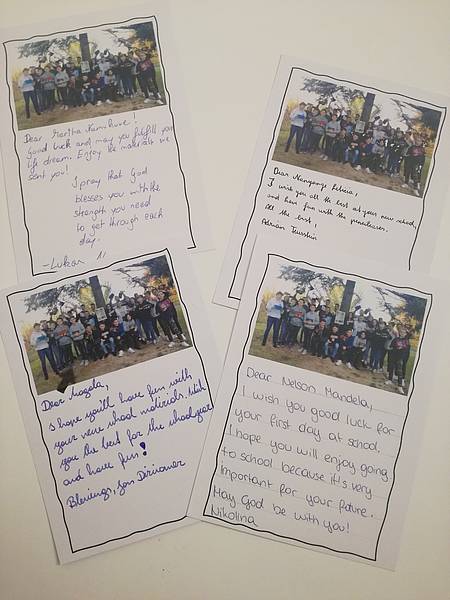 Dear Martha Namukuve!
Good luck and may you fulfill your
life dream. Enjoy the materials we
sent you!
I pray that God
blesses you with the
strength you need
to get through each
day.
-Lukas
Dear
I wish you all the best at your new school,
and have fun with the
All the best,
Adrian
Dear
I hope you'll have fun with
your new school materials. Wish
you the best for the schoolyear
and have fun!
Blessings, Jon
Dear Nelson Mandela,
I wish you good luck for
your first day at school,
I hope you will enjoy going
to school because it's very
important for your future.
May God be with you!
Nikolina